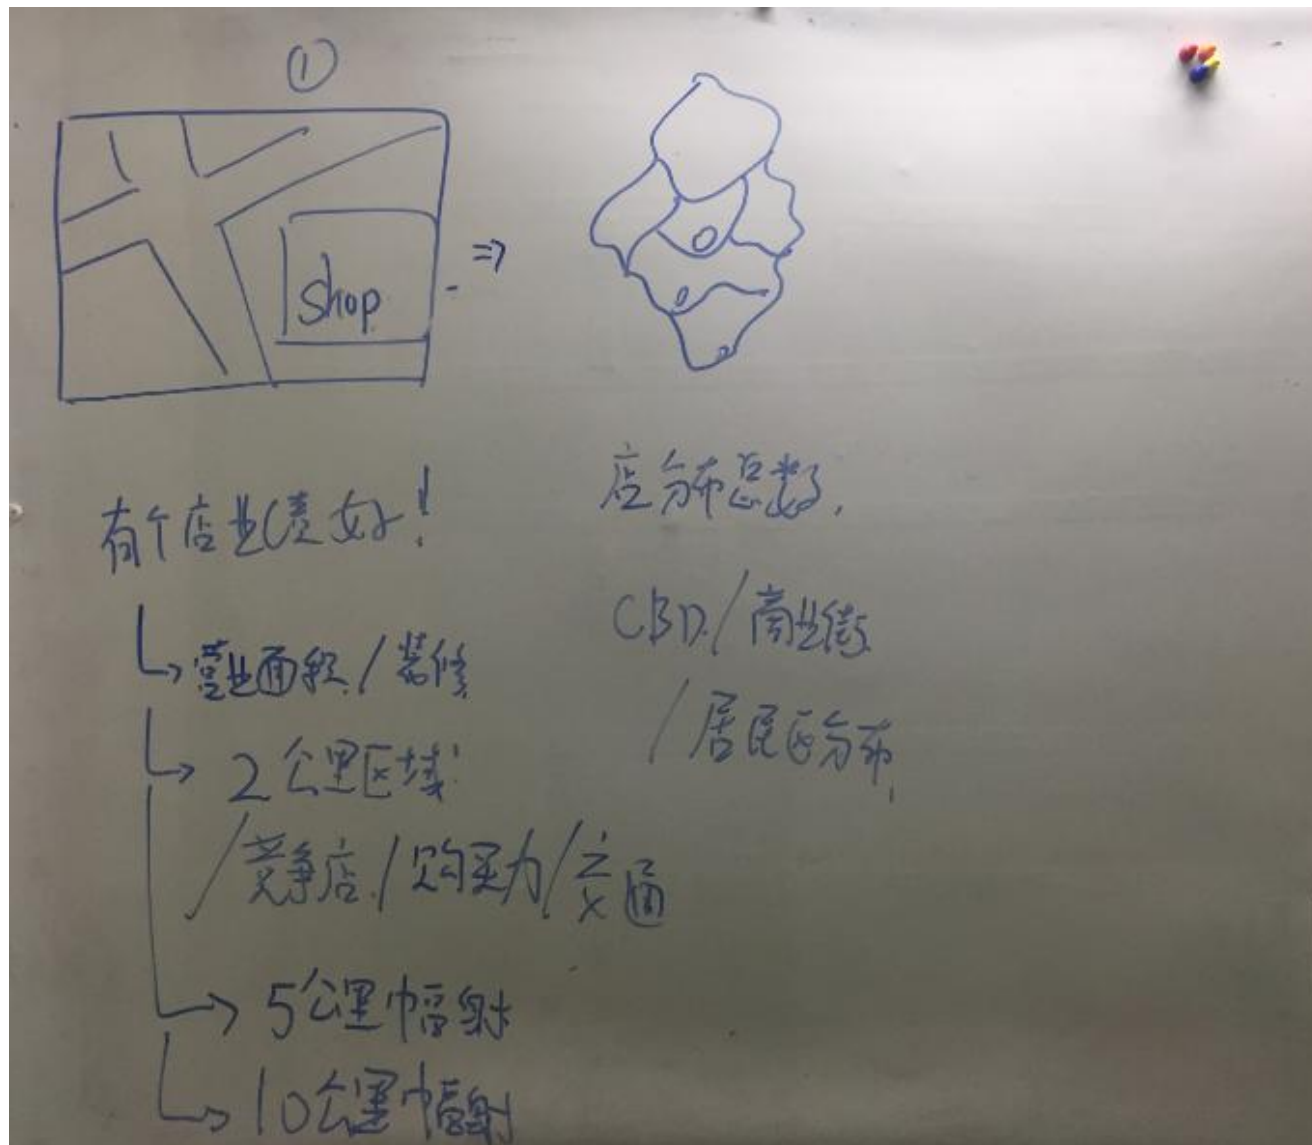 ①
shop
⇒
有个店业绩好!
↳营业面积/装修
↳2公里区域
/竞争店/购买力/交通
↳5公里幅射
↳10公里幅射
店分布总数.
CBD/商业街
/居民区分布